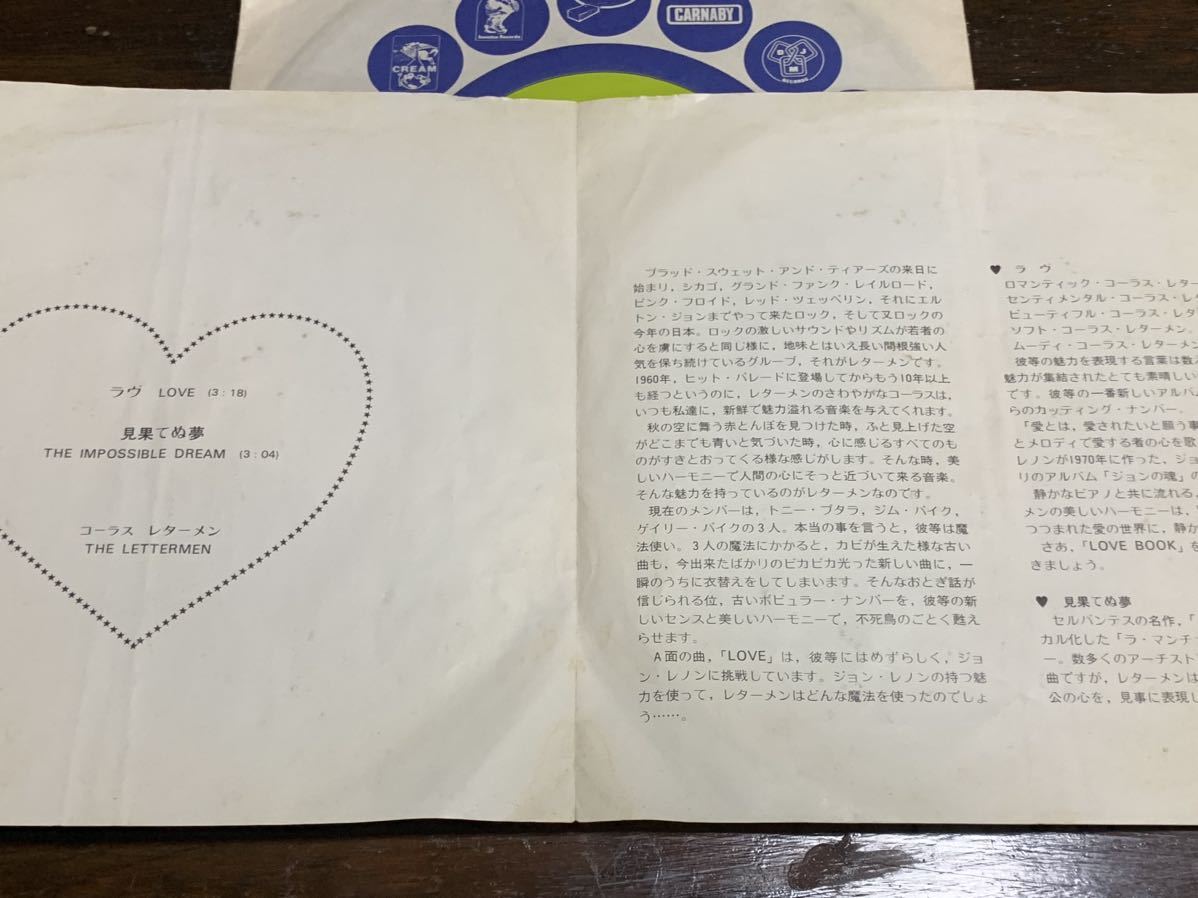 Invictus Records
CARNABY
CREAM
DJM
RECORDS
ラヴ LOVE (3:18)
見果てぬ夢
THE IMPOSSIBLE DREAM (3:04)
コーラス レターメン
THE LETTERMEN
ブラッド・スウェット・アンド・ティアーズの来日に
始まり，シカゴ，グランド・ファンク・レイルロード，
ピンク・フロイド，レッド・ツェッペリン，それにエル
トン・ジョンまでやって来たロック，そして又ロックの
今年の日本。ロックの激しいサウンドやリズムが若者の
心を虜にすると同じ様に，地味とはいえ長い間根強い人
気を保ち続けているグループ，それがレターメンです。
1960年，ヒット・パレードに登場してからもう10年以上
も経つというのに，レターメンのさわやかなコーラスは，
いつも私達に，新鮮で魅力溢れる音楽を与えてくれます。
秋の空に舞う赤とんぼを見つけた時，ふと見上げた空
がどこまでも青いと気づいた時，心に感じるすべてのも
のがすきとおってくる様な感じがします。そんな時，美
しいハーモニーで人間の心にそっと近づいて来る音楽。
そんな魅力を持っているのがレターメンなのです。
現在のメンバーは，トニー・ブタラ，ジム・パイク，
ゲイリー・パイクの3人。本当の事を言うと，彼等は魔
法使い。3人の魔法にかかると，カビが生えた様な古い
曲も，今出来たばかりのピカピカ光った新しい曲に，一
瞬のうちに衣替えをしてしまいます。そんなおとぎ話が
信じられる位，古いポピュラー・ナンバーを，彼等の新
しいセンスと美しいハーモニーで，不死鳥のごとく甦え
らせます。
A面の曲，「LOVE」は，彼等にはめずらしく，ジョ
ン・レノンに挑戦しています。ジョン・レノンの持つ魅
力を使って，レターメンはどんな魔法を使ったのでしょ
う……。
♥ ラヴ
ロマンティック・コーラス・レター
センティメンタル・コーラス・レ
ビューティフル・コーラス・レタ
ソフト・コーラス・レターメン，
ムーディ・コーラス・レターメン
彼等の魅力を表現する言葉は数え
魅力が集結されたとても素晴しい
です。彼等の一番新しいアルバム
らのカッティング・ナンバー。
「愛とは，愛されたいと願う事
とメロディで愛する者の心を歌
レノンが1970年に作った，ジョ
リのアルバム「ジョンの魂」の
静かなピアノと共に流れる，
メンの美しいハーモニーは，
つつまれた愛の世界に，静か
さあ，「LOVE BOOK」を
きましょう。
♥ 見果てぬ夢
セルバンテスの名作，「
カル化した「ラ・マンチ
ー。数多くのアーチスト
曲ですが，レターメンは
公の心を，見事に表現し